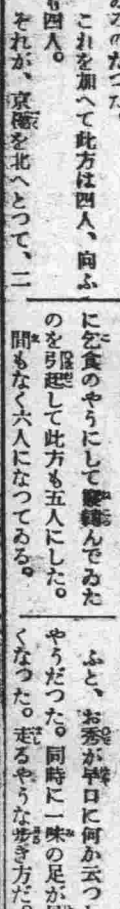 これを加へて此方は四人、向ふ
も四人。
それが、京極を北へとつて、二
に乞食のやうにして んでゐた
のを引起して此方も五人にした。
間もなく六人になつてゐる。
ふと、お秀が早口に何か云つ
やうだつた。同時に一味の足が
くなつた。走るやうな歩き方だ。